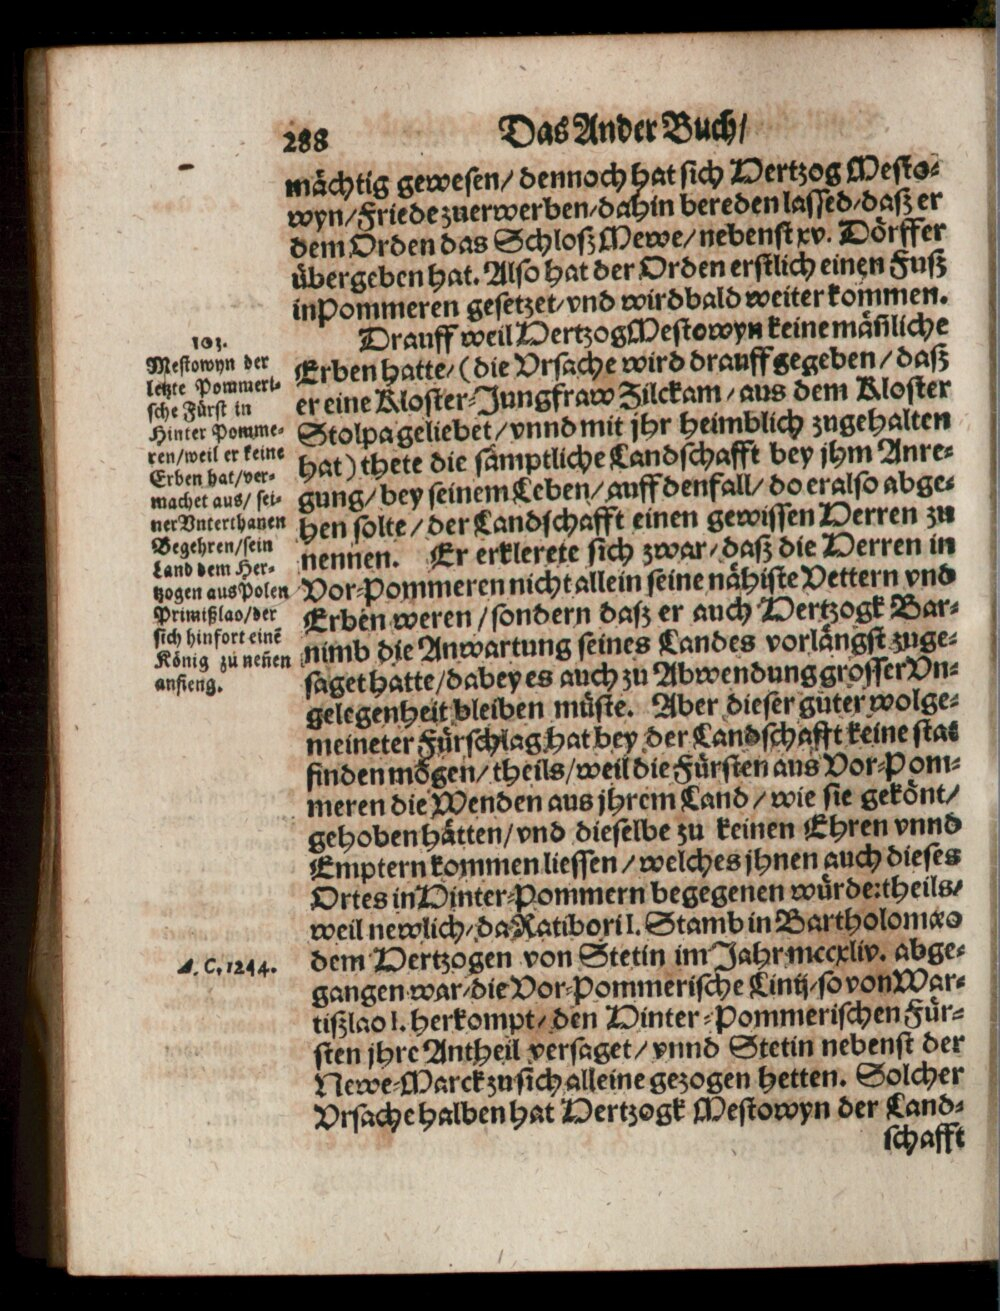 288
Das Ander Buch/
mächtig gewesen/ dennoch hat sich Hertzog Mesto-
wyn/ Friede zuerwerben/ dahin bereden lassed/ daß er
dem Orden das Schloß Mewe/ nebenst xv. Dörffer
übergeben hat. Also hat der Orden erstlich einen Fuß
in Pommeren gesetzet/ vnd wird bald weiter kommen.
Drauff weil Hertzog Mestowyn keine mäñliche
Erben hatte/ (die Vrsache wird drauff gegeben/ daß
er eine Kloster-Jungfraw Zilckam/ aus dem Kloster
Stolpa geliebet/ vnnd mit jhr heimblich zugehalten
hat) thete die sämptliche Landschafft bey jhm Anre-
gung/ bey seinem Leben/ auff den fall/ do er also abge-
hen solte/ der Landschafft einen gewissen Herren zu
nennen. Er erklerete sich zwar/ daß die Herren in
Vor-Pommeren nicht allein seine nähiste Vettern vnd
Erben weren/ sondern daß er auch Hertzogk Bar-
nimb die Anwartung seines Landes vorlängst zuge-
saget hatte/ dabey es auch zu Abwendung grosser Vn-
gelegenheit bleiben müste. Aber dieser guter wolge-
meineter Fürschlag hat bey der Landschafft keine stat
finden mögen/ theils/ weil die Fürsten aus Vor-Pom-
meren die Wenden aus jhrem Land/ wie sie gekönt/
gehoben hätten/ vnd dieselbe zu keinen Ehren vnnd
Emptern kommen liessen/ welches jhnen auch dieses
Ortes in Hinter-Pommern begegenen würde: theils/
weil newlich/ da Ratibori I. Stamb in Bartholomæo
dem Hertzogen von Stetin im Jahr mccxliv. abge-
gangen war/ die Vor-Pommerische Linij/ so von War-
tißlao I. herkompt/ den Hinter-Pommerischen Für-
sten jhre Antheil versaget/ vnnd Stetin nebenst der
Newe-Marck zu sich alleine gezogen hetten. Solcher
Vrsache halben hat Hertzogk Mestowyn der Land-
schafft
103.
Mestowyn der
letzte Pommeri-
sche Fürst in
Hinter Pomme-
ren/ weil er keine
Erben hat/ ver-
machet aus/ sei-
ner Vnterthanen
Begehren/ sein
Land dem Her-
tzogen aus Polen
Primißlao/ der
sich hinfort einẽ
König zu neñen
anfieng.
A. C. 1244.